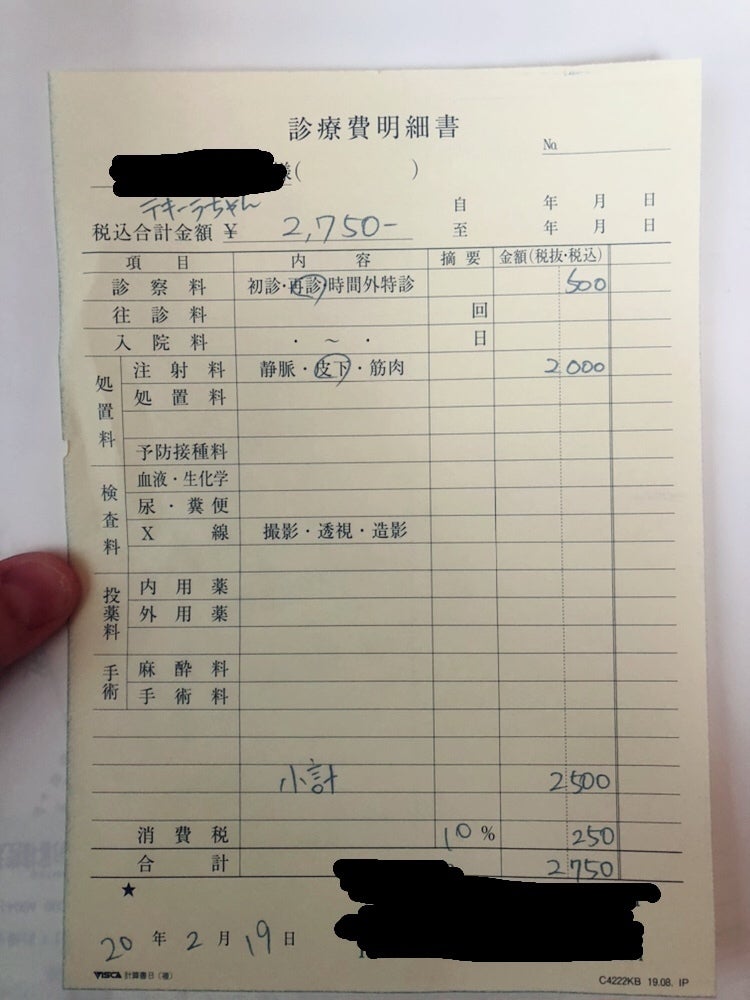 診療費明細書
No.
様( )
テキーラちゃん
自 年 月 日
税込合計金額 ¥ 2,750-
至 年 月 日
項目 内容 摘要 金額(税抜・税込)
診察料 初診・再診・時間外特診 500
往診料 回
入院料 ・ ~ ・ 日
処置料
注射料 静脈・皮下・筋肉 2000
処置料
予防接種料
検査料
血液・生化学
尿・糞便
X線 撮影・透視・造影
投薬料
内用薬
外用薬
手術
麻酔料
手術料
小計 2500
消費税 10% 250
合計 2750
★
20年2月19日
VISCA 計算書日(種) C4222KB 19.08. IP